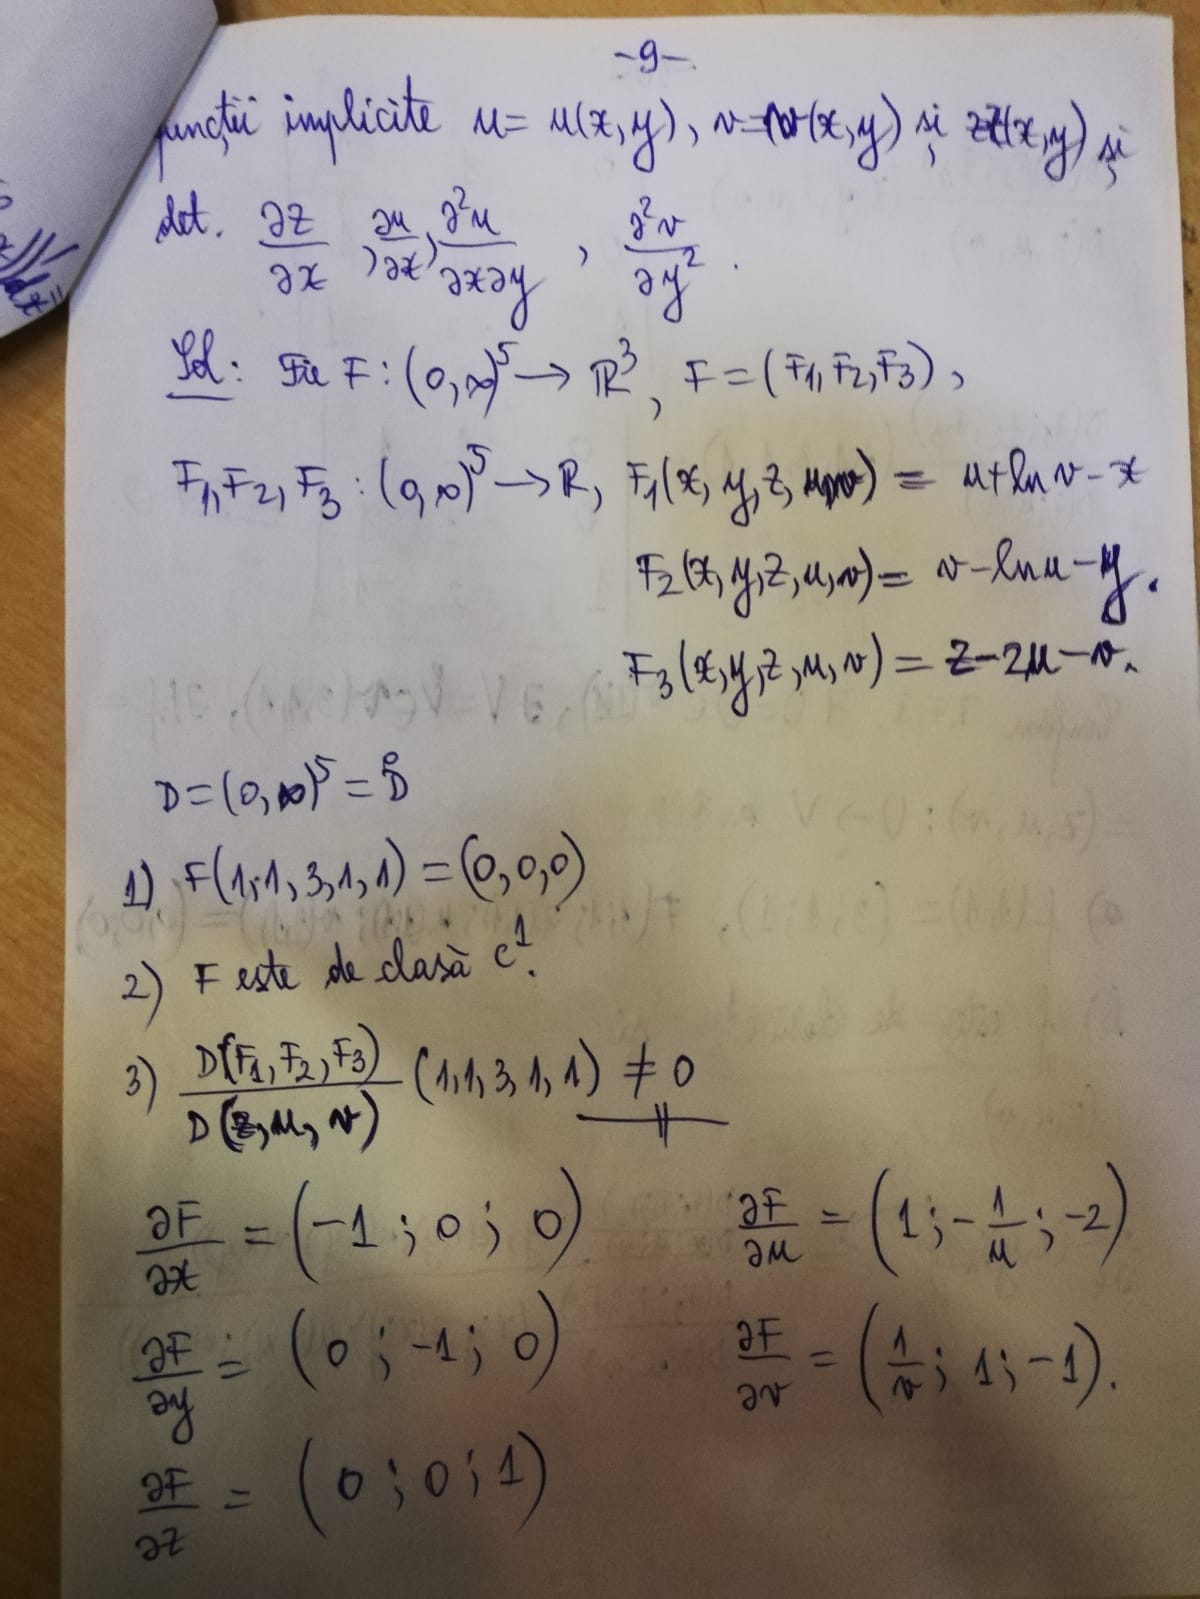 -9-
funcții implicite u = u(x,y), v = v(x,y) și z = z(x,y) și
det. ∂z/∂x, ∂u/∂x, ∂²u/∂x∂y, ∂²v/∂y².
Sol: Fie F: (0,∞)⁵ → ℝ³, F = (F₁, F₂, F₃),
F₁, F₂, F₃ : (0,∞)⁵ → ℝ, F₁(x, y, z, u, v) = u + ln v - x
F₂(x, y, z, u, v) = v - ln u - y.
F₃(x, y, z, u, v) = z - 2u - v.
D = (0,∞)⁵ = D̊
1) F(1,1,3,1,1) = (0,0,0)
2) F este de clasă C¹.
3) D(F₁, F₂, F₃)/D(z, u, v) (1,1,3,1,1) ≠ 0
∂F/∂x = (-1; 0; 0) ∂F/∂u = (1; -1/u; -2)
∂F/∂y = (0; -1; 0) ∂F/∂v = (1/v; 1; -1).
∂F/∂z = (0; 0; 1)